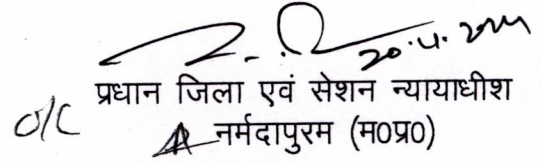 20.4.2024
प्रधान जिला एवं सेशन न्यायाधीश
O/C नर्मदापुरम (म0प्र0)